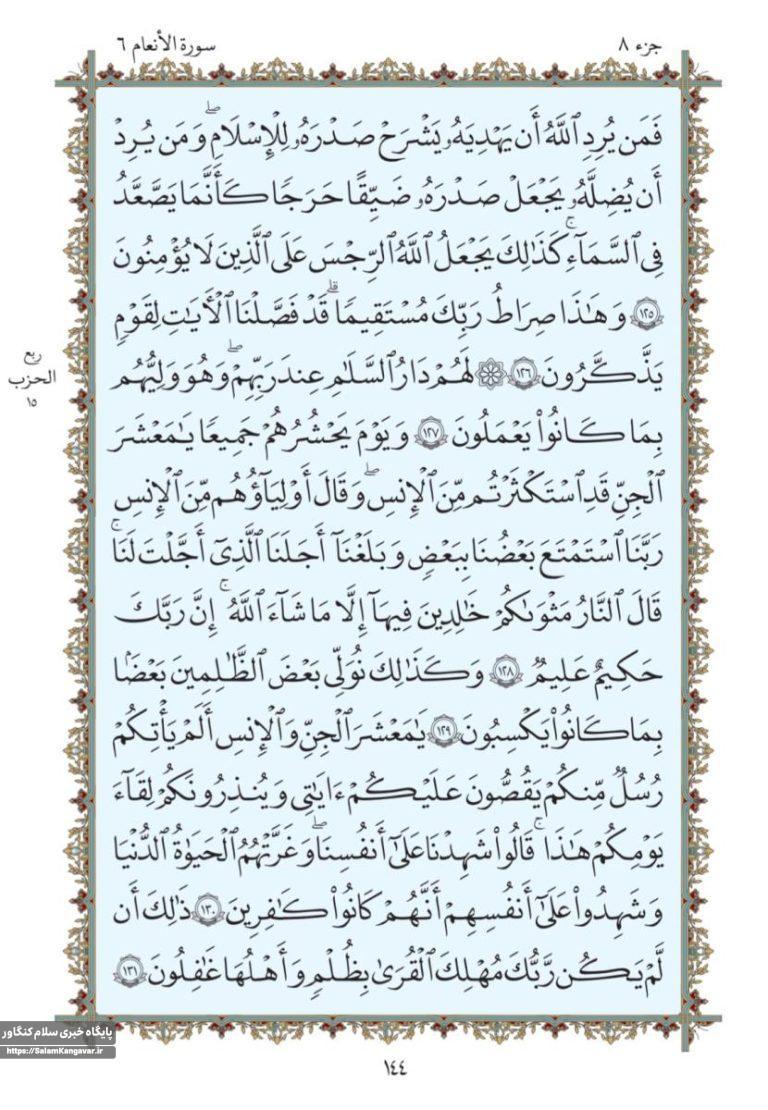 جزء ٨
سورة الأنعام ٦
فَمَن يُرِدِ ٱللَّهُ أَن يَهْدِيَهُۥ يَشْرَحْ صَدْرَهُۥ لِلْإِسْلَٰمِ ۖ وَمَن يُرِدْ
أَن يُضِلَّهُۥ يَجْعَلْ صَدْرَهُۥ ضَيِّقًا حَرَجًا كَأَنَّمَا يَصَّعَّدُ
فِى ٱلسَّمَآءِ ۚ كَذَٰلِكَ يَجْعَلُ ٱللَّهُ ٱلرِّجْسَ عَلَى ٱلَّذِينَ لَا يُؤْمِنُونَ
١٢٥ وَهَٰذَا صِرَٰطُ رَبِّكَ مُسْتَقِيمًا ۗ قَدْ فَصَّلْنَا ٱلْءَايَٰتِ لِقَوْمٍ
يَذَّكَّرُونَ ١٢٦ ۞ لَهُمْ دَارُ ٱلسَّلَٰمِ عِندَ رَبِّهِمْ ۖ وَهُوَ وَلِيُّهُم
بِمَا كَانُوا۟ يَعْمَلُونَ ١٢٧ وَيَوْمَ يَحْشُرُهُمْ جَمِيعًا يَٰمَعْشَرَ
ٱلْجِنِّ قَدِ ٱسْتَكْثَرْتُم مِّنَ ٱلْإِنسِ ۖ وَقَالَ أَوْلِيَآؤُهُم مِّنَ ٱلْإِنسِ
رَبَّنَا ٱسْتَمْتَعَ بَعْضُنَا بِبَعْضٍ وَبَلَغْنَآ أَجَلَنَا ٱلَّذِىٓ أَجَّلْتَ لَنَا ۚ
قَالَ ٱلنَّارُ مَثْوَىٰكُمْ خَٰلِدِينَ فِيهَآ إِلَّا مَا شَآءَ ٱللَّهُ ۗ إِنَّ رَبَّكَ
حَكِيمٌ عَلِيمٌ ١٢٨ وَكَذَٰلِكَ نُوَلِّى بَعْضَ ٱلظَّٰلِمِينَ بَعْضًۢا
بِمَا كَانُوا۟ يَكْسِبُونَ ١٢٩ يَٰمَعْشَرَ ٱلْجِنِّ وَٱلْإِنسِ أَلَمْ يَأْتِكُمْ
رُسُلٌ مِّنكُمْ يَقُصُّونَ عَلَيْكُمْ ءَايَٰتِى وَيُنذِرُونَكُمْ لِقَآءَ
يَوْمِكُمْ هَٰذَا ۚ قَالُوا۟ شَهِدْنَا عَلَىٰٓ أَنفُسِنَا ۖ وَغَرَّتْهُمُ ٱلْحَيَوٰةُ ٱلدُّنْيَا
وَشَهِدُوا۟ عَلَىٰٓ أَنفُسِهِمْ أَنَّهُمْ كَانُوا۟ كَٰفِرِينَ ١٣٠ ذَٰلِكَ أَن
لَّمْ يَكُن رَّبُّكَ مُهْلِكَ ٱلْقُرَىٰ بِظُلْمٍ وَأَهْلُهَا غَٰفِلُونَ ١٣١
ربع
الحزب
١٥
پایگاه خبری سلام کنگاور
https://SalamKangavar.ir
١٤٤